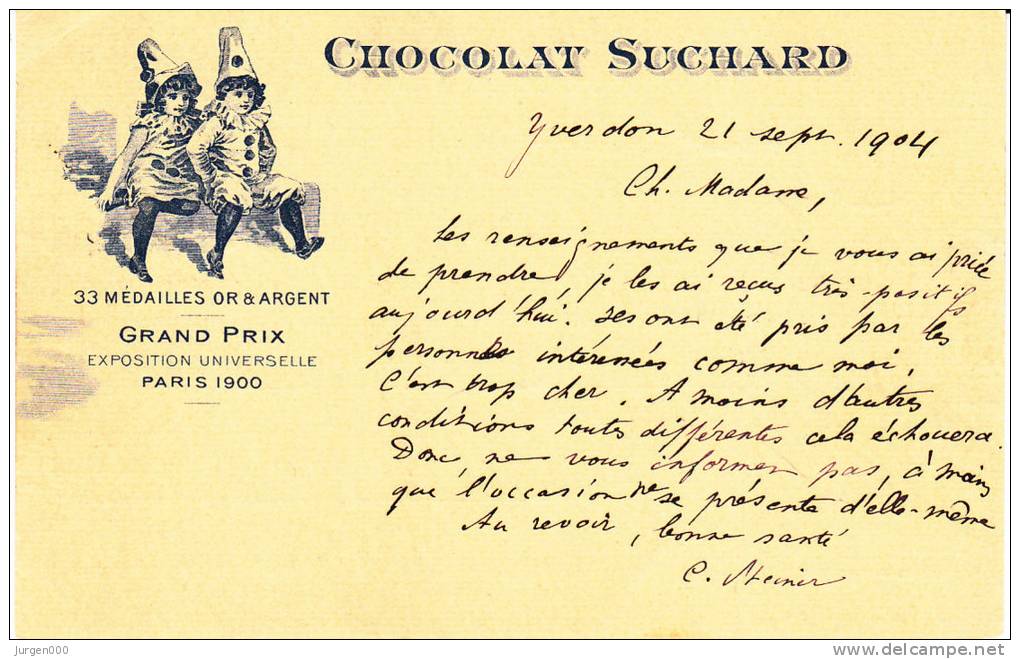 CHOCOLAT SUCHARD
33 MÉDAILLES OR & ARGENT
GRAND PRIX
EXPOSITION UNIVERSELLE
PARIS 1900
Yverdon 21 sept. 1904
Ch. Madame,
Les renseignements que je vous ai priée
de prendre, je les ai reçus très-positifs
aujourd'hui. Ils ont été pris par les
personnes intéressées comme moi.
C'est trop cher. A moins d'autres
conditions toutes différentes cela échouera.
Donc, ne vous informer pas, à moins
que l'occasion ne se présente d'elle-même
Au revoir, bonne santé
C. Steiner
Jurgen000
www.delcampe.net